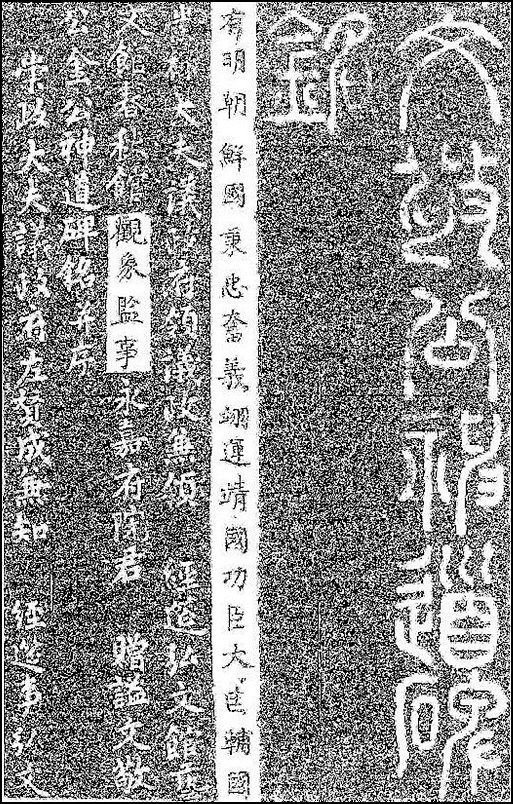 文敬公神道碑
銘
有明朝鮮國秉忠奮義翊運靖國功臣大匡輔國
崇祿大夫議政府領議政兼領 經筵弘文館藝
文館春秋館觀象監事永嘉府院君 贈諡文敬
公金公神道碑銘并序
崇政大夫議政府左贊成兼知 經筵事弘文